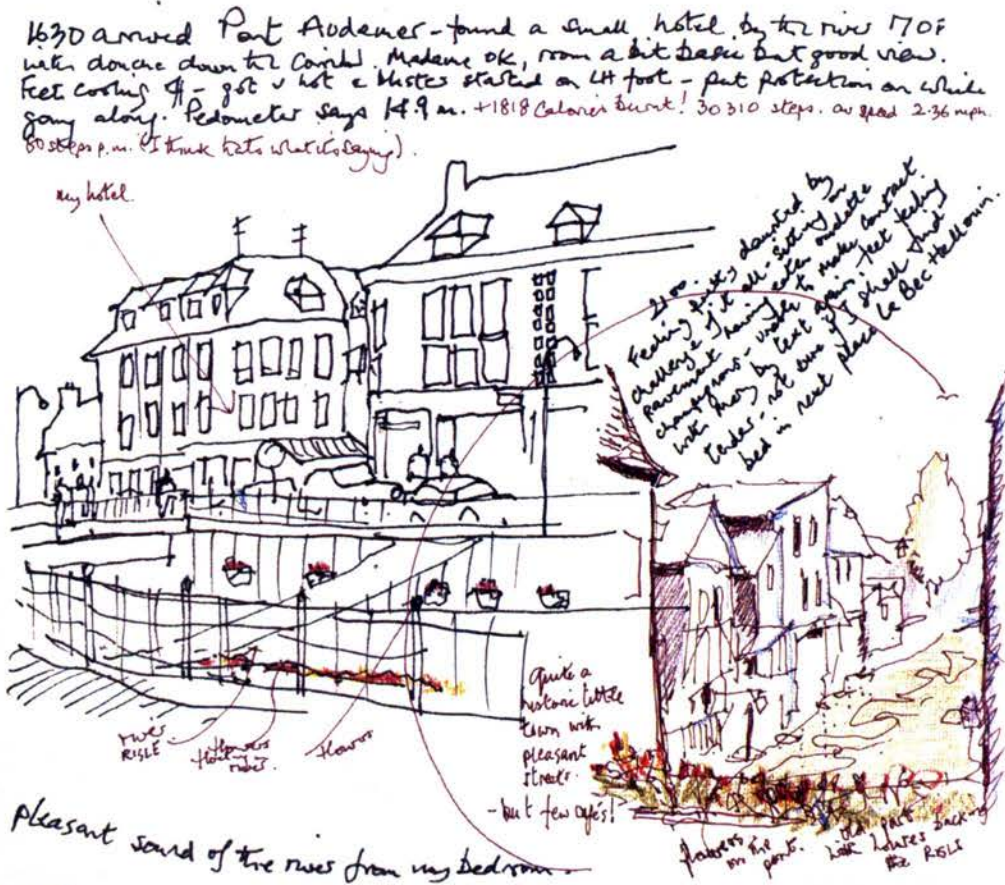 1630 arrived Pont Audemer - found a small hotel by the river 170F
with douche down the corridor. Madame OK, room a bit basic but good view.
Feet cooling off - got v hot & blister started on LH foot - put protection on while
going along. Pedometer says 14.9 m. +1818 Calories burnt! 30 310 steps. av speed 2.36 mph.
80 steps p.m. (I think thats what its saying).
my hotel.
2100.
Feeling daunted by
challenge of it all - sitting on
pavement having eaten
champignons - unable to make contact
with Mary by text again. feet feeling
tender - not sure if I shall find
bed in next place Le Bec Hellouin.
river
RISLE
flowers
floating in
river.
flowers
Quite a
historic little
town with
pleasant
streets.
- but few cafés!
flowers
on the
pont.
old part
with houses backing
the RISLE
pleasant sound of the river from my bedroom.